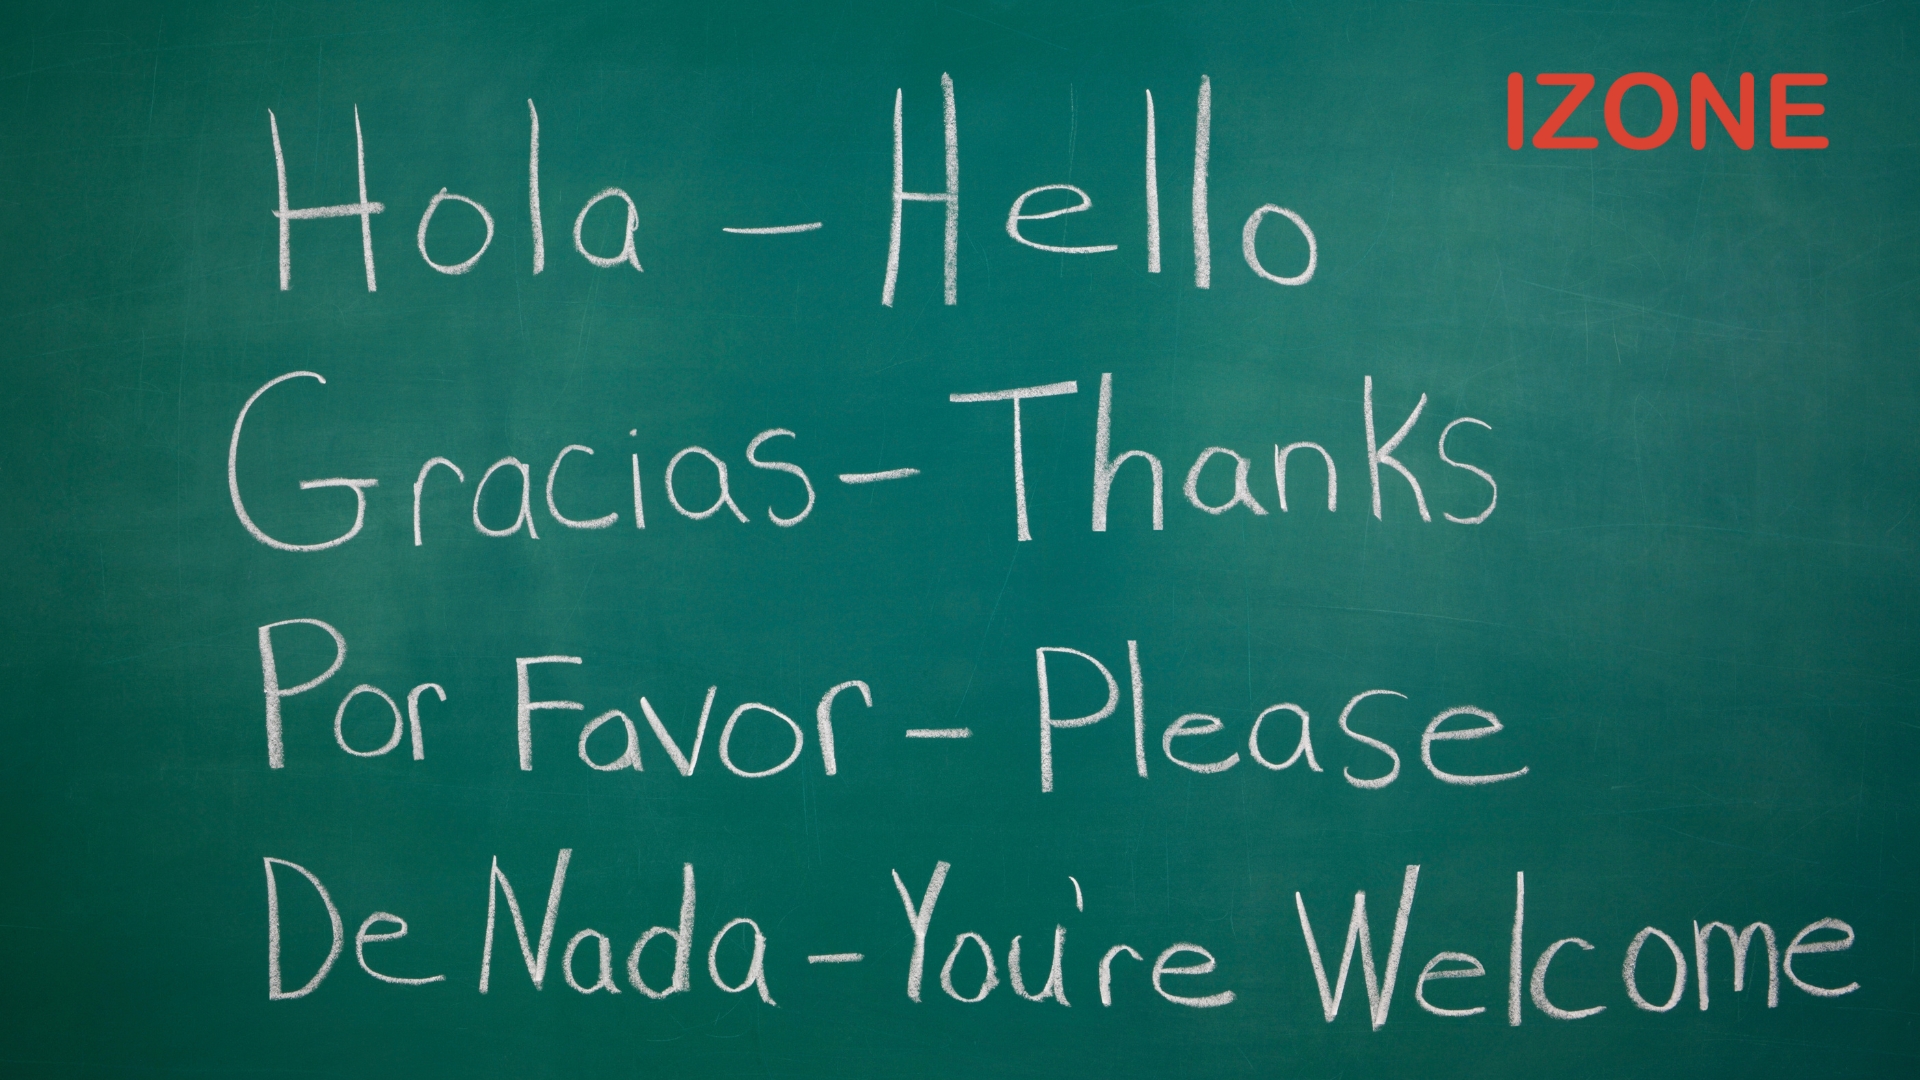 IZONE
Hola – Hello
Gracias – Thanks
Por Favor – Please
De Nada – You're Welcome